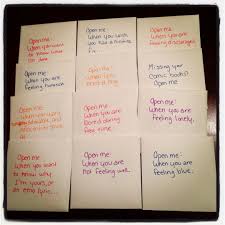 Open me:
When you want
to know what I'm
Open me:
When you wish
you had a
Open me:
When you are
feeling discouraged.
Open me:
When you are
feeling
Open me:
When you
need a
Missing your
comic books?
Open me.
Open me:
When you
Open me:
When you are
bored during
free time
Open me:
When you are
feeling lonely.
Open me:
When you want
to know why
I'm yours, or
an emo
Open me:
When you are
not feeling well.
Open me:
When you are
feeling blue.